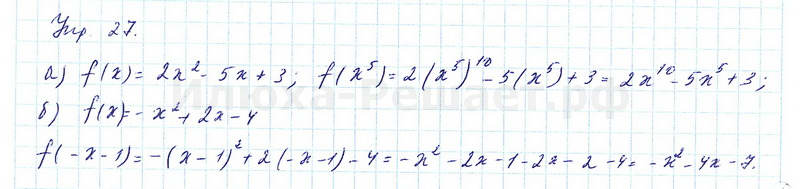 Упр 27.
а) f(x) = 2x² - 5x + 3; f(x⁵) = 2(x⁵)¹⁰ - 5(x⁵) + 3 = 2x¹⁰ - 5x⁵ + 3;
Илюха-Решает.рф
б) f(x) = - x² + 2x - 4
f(-x-1) = -(x-1)² + 2(-x-1) - 4 = -x² - 2x - 1 - 2x - 2 - 4 = -x² - 4x - 7.